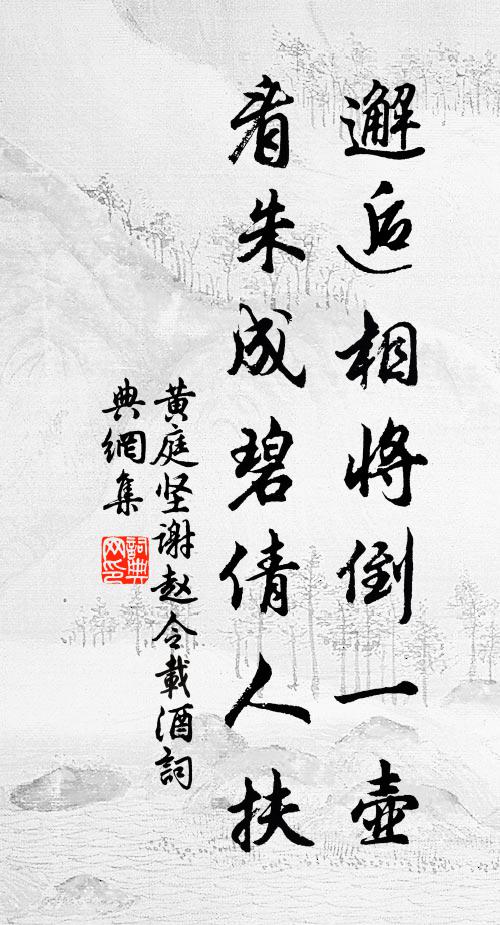 邂逅相将倒一壺
看朱成碧倩人扶
黄庭坚谢赵令載酒詞
典網集
詞典
网印